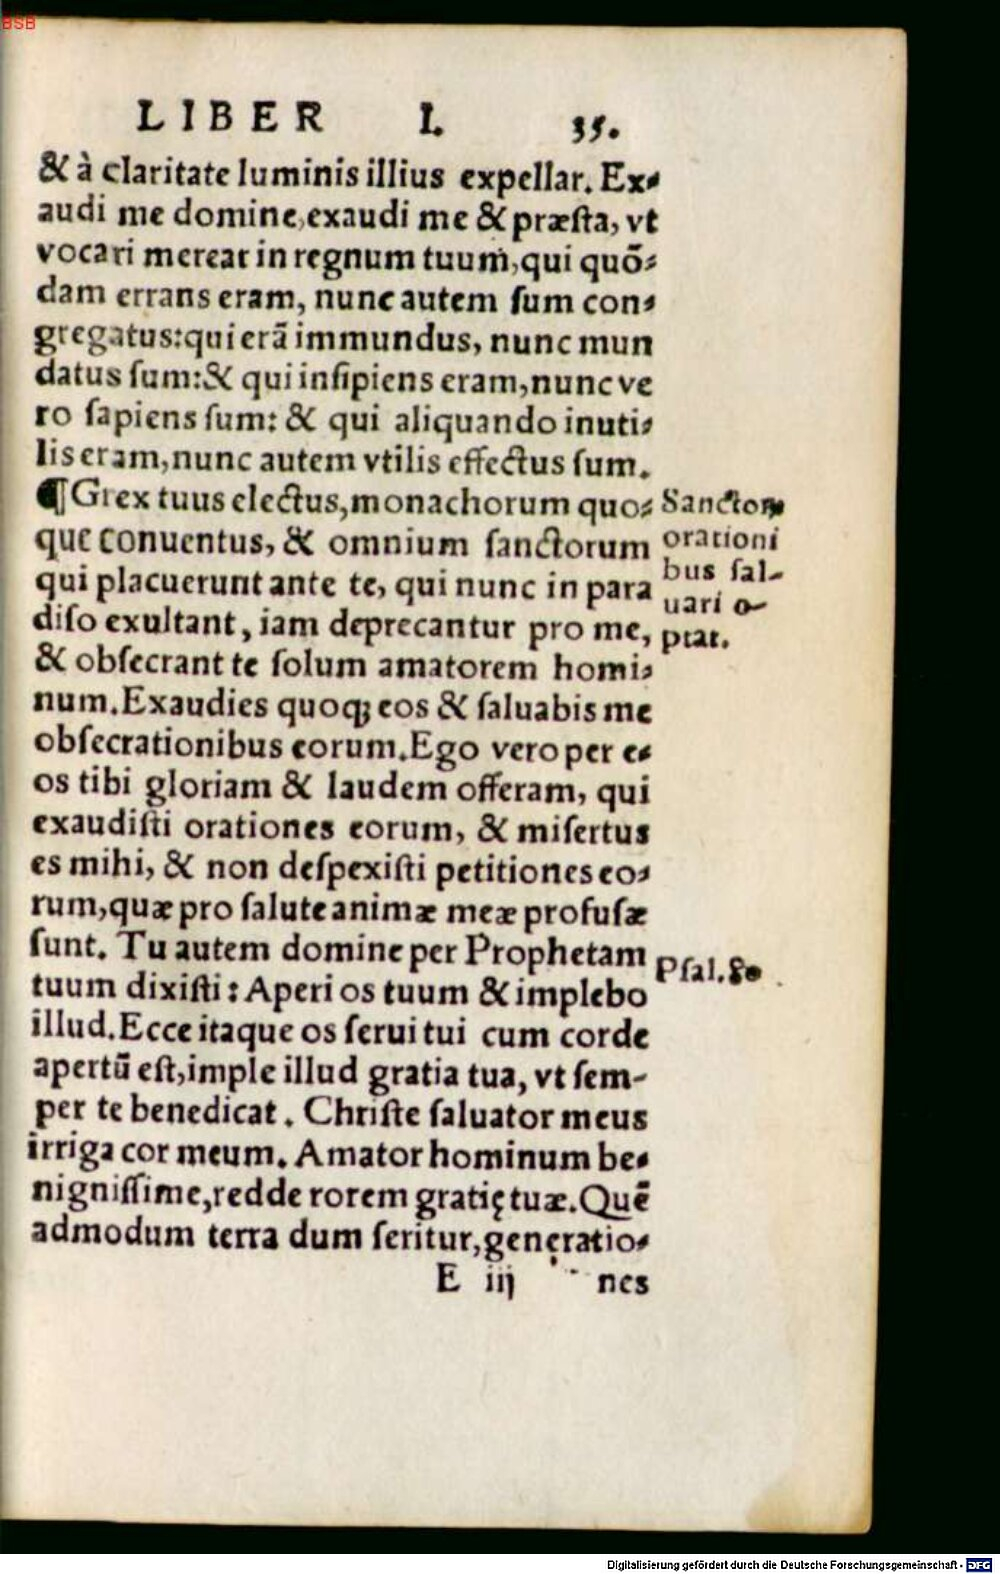 BSB
LIBER I. 35.
& à claritate luminis illius expellar. Ex⸗
audi me domine, exaudi me & præſta, vt
vocari merear in regnum tuum, qui quō⸗
dam errans eram, nunc autem ſum con⸗
gregatus: qui erā immundus, nunc mun
datus ſum: & qui inſipiens eram, nunc ve
ro ſapiens ſum: & qui aliquando inuti⸗
lis eram, nunc autem vtilis effectus ſum.
¶ Grex tuus electus, monachorum quo⸗
que conuentus, & omnium ſanctorum
qui placuerunt ante te, qui nunc in para
diſo exultant, iam deprecantur pro me,
& obſecrant te ſolum amatorem homi⸗
num. Exaudies quoqꝫ eos & ſaluabis me
obſecrationibus eorum. Ego vero per e⸗
os tibi gloriam & laudem offeram, qui
exaudiſti orationes eorum, & miſertus
es mihi, & non deſpexiſti petitiones eo⸗
rum, quæ pro ſalute animæ meæ profuſæ
ſunt. Tu autem domine per Prophetam
tuum dixiſti: Aperi os tuum & implebo
illud. Ecce itaque os ſerui tui cum corde
apertū eſt, imple illud gratia tua, vt ſem-
per te benedicat. Chriſte ſaluator meus
irriga cor meum. Amator hominum be⸗
nigniſſime, redde rorem gratię tuæ. Quē
admodum terra dum ſeritur, generatio⸗
E iij nes
Sanctoꝝ
orationi
bus ſal-
uari o-
ptat.
Pſal. 80
Digitalisierung gefördert durch die Deutsche Forschungsgemeinschaft - DFG